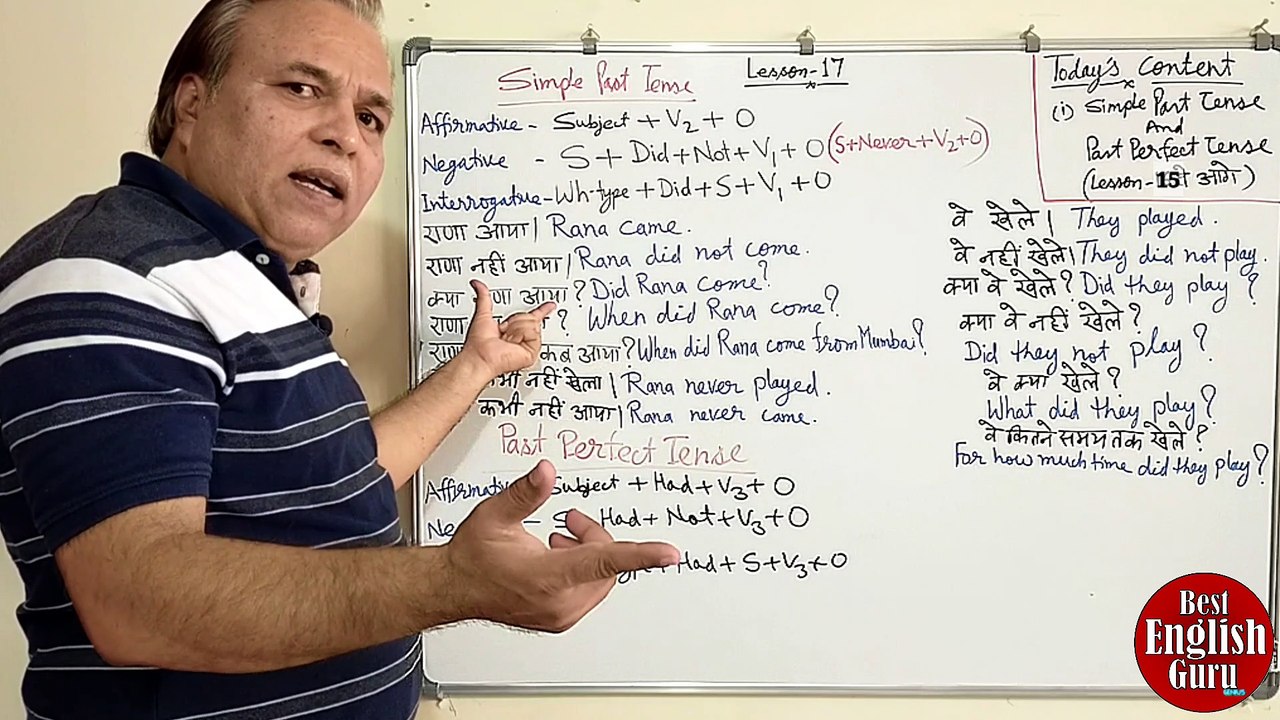 Simple Past Tense
Lesson-17
Affirmative - Subject + V2 + O
Negative - S + Did + Not + V1 + O (S+Never+V2+O)
Interrogative - Wh-type + Did + S + V1 + O
राणा आया | Rana came.
राणा नहीं आया | Rana did not come.
क्या आया ? Did Rana come?
राणा ? When did Rana come?
कब आया ? When did Rana come from Mumbai?
कभी नहीं खेला | Rana never played.
कभी नहीं आया | Rana never came.
Past Perfect Tense
Subject + Had + V3 + O
- S Had + Not + V3 + O
Had + S + V3 + O
Today's Content
(i) Simple Past Tense
And
Past Perfect Tense
(Lesson-15 से आगे)
वे खेले | They played.
वे नहीं खेले | They did not play.
क्या वे खेले ? Did they play ?
क्या वे नहीं खेले ?
Did they not play ?
वे क्या खेले ?
What did they play ?
वे कितने समय तक खेले ?
For how much time did they play ?
Best
English
Guru
GENIUS